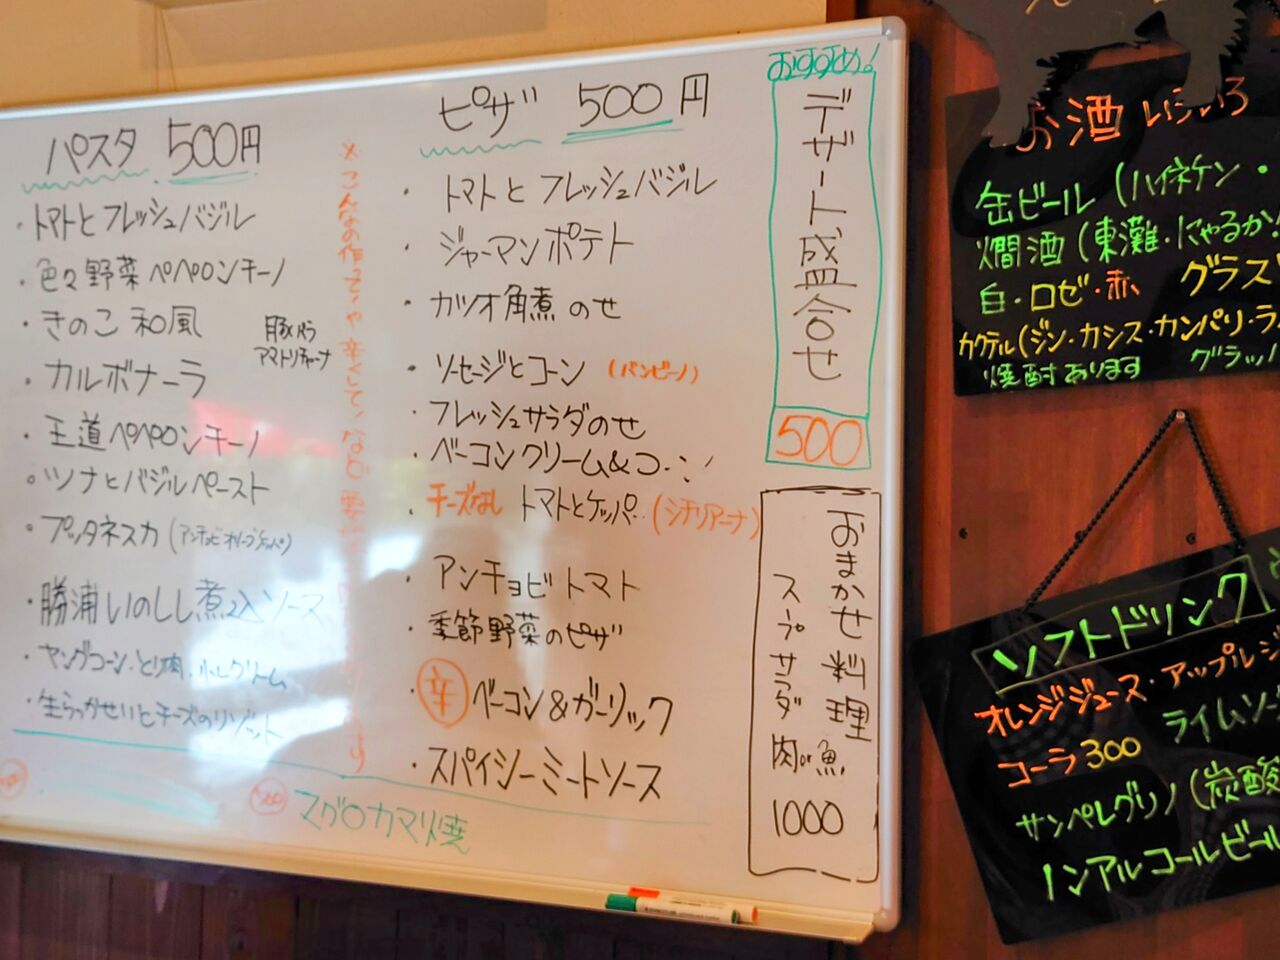 パスタ 500円
・トマトとフレッシュバジル
・色々野菜ペペロンチーノ
・きのこ和風
豚バラ
アマトリチャーナ
・カルボナーラ
・王道ペペロンチーノ
・ツナとバジルペースト
・プッタネスカ(アンチョビオリーブケッパー)
・勝浦いのしし煮込ソース
・ヤングコーン・とり肉・小しクリーム
・生らっかせいとチーズのリゾット
※こんなの作って、や辛くして、など
ピザ 500円
・トマトとフレッシュバジル
・ジャーマンポテト
・カツオ角煮のせ
・ソーセージとコーン (バンビーノ)
・フレッシュサラダのせ
・ベーコンクリーム&コーン
・チーズなし トマトとケッパー (シチリアーナ)
・アンチョビトマト
・季節野菜のピザ
・辛 ベーコン&ガーリック
・スパイシーミートソース
マグロカマ焼
おすすめ!
デザート盛合せ
500
おまかせ料理
スープ サラダ 肉or魚
1000
お酒いろいろ
缶ビール(ハイネケン・
燗酒(東灘・にゃるか!
白・ロゼ・赤 グラス
カクテル(ジン・カシス・カンパリ・ラ
焼酎あります グラッ
ソフトドリンク
オレンジジュース・アップルジ
コーラ300 ライムソー
サンペレグリノ(炭酸
ノンアルコールビール